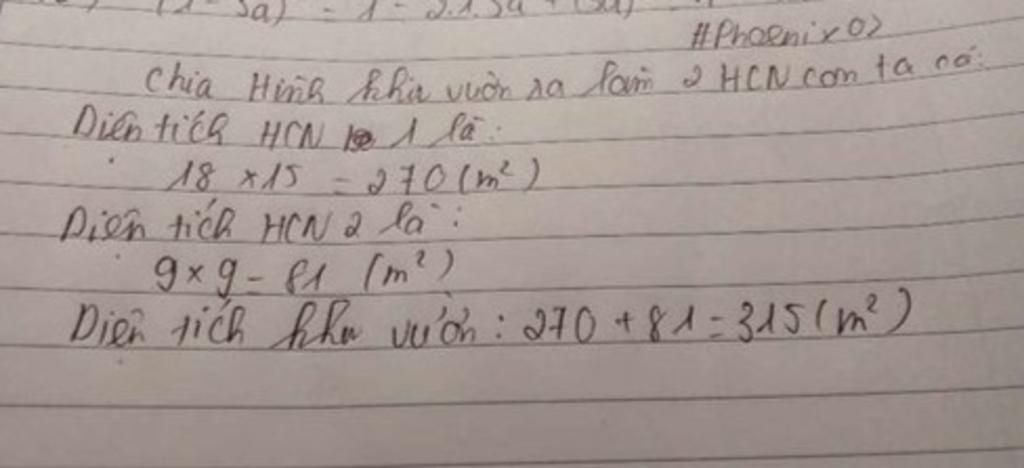 (1-3a) = 1 - 2.1.3a + (3a)
#Phoenix02
Chia Hình khu vườn ra làm 2 HCN con ta có:
Diện tích HCN 1 là:
18 x 15 = 270 (m²)
Diện tích HCN 2 là:
9 x 9 = 81 (m²)
Diện tích khu vườn: 270 + 81 = 315 (m²)